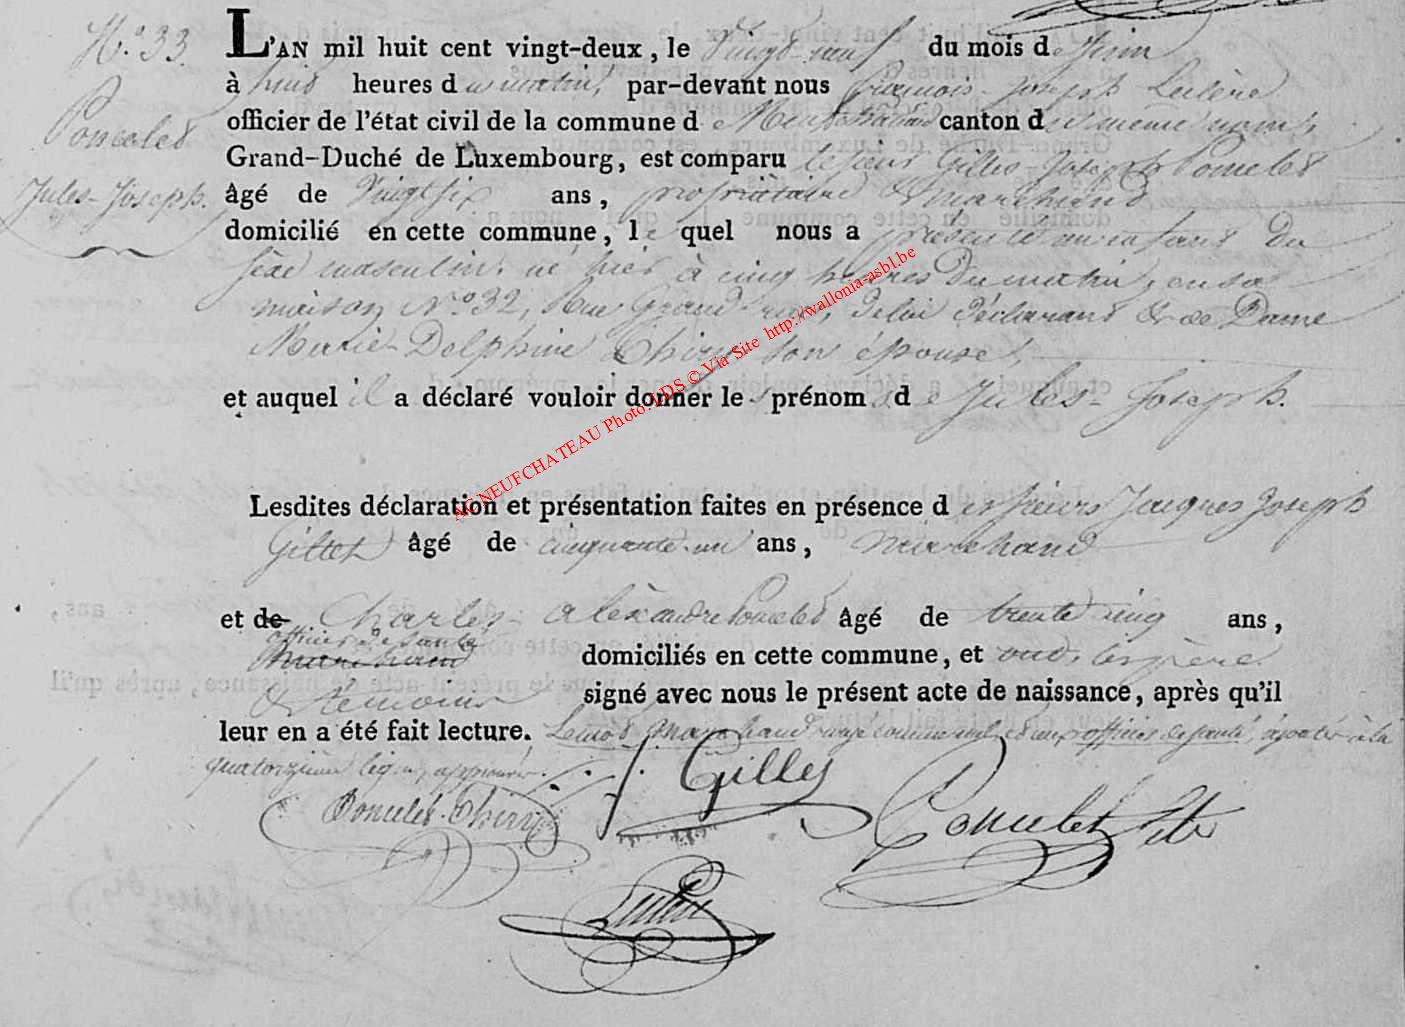 N.° 33.
Poncelet
Jules-Joseph.
L'AN mil huit cent vingt-deux, le vingt-neuf du mois de Juin
à huit heures du matin, par-devant nous François-Joseph
officier de l'état civil de la commune de Neufchâteau canton du même nom,
Grand-Duché de Luxembourg, est comparu le sieur Gilles-Joseph Poncelet
âgé de Vingt six ans, propriétaire & marchand
domicilié en cette commune, lequel nous a présenté un enfant du
sexe masculin, né hier à cinq heures du matin, en sa
maison N.° 32, Rue Grand-rue, de lui déclarant & de Dame
Marie-Delphine Thiry son épouse,
et auquel il a déclaré vouloir donner les prénoms de Jules-Joseph.
Lesdites déclaration et présentation faites en présence des sieurs Jacques Joseph
Gilles âgé de cinquante-un ans, marchand
et de Charles-Alexandre Poncelet âgé de trente cinq ans,
officier de santé
marchand domiciliés en cette commune, et ont, les père
& témoins signé avec nous le présent acte de naissance, après qu'il
leur en a été fait lecture. Le mot marchand rayé comme nul et ceux officier de santé, ajoutés à la
quatorzième ligne, approuvés.
Poncelet-Thiry
J. Gilles
Poncelet
AC NEUFCHATEAU Photo: LDS © Via Site http://wallonia-asbl.be